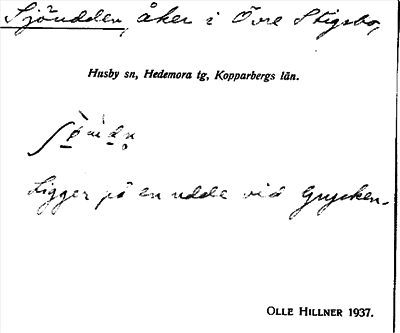 Sjöudden, åker i Övre Stigsbo,
Husby sn, Hedemora tg, Kopparbergs län.
Ligger på en udde vid Grycken.
OLLE HILLNER 1937.